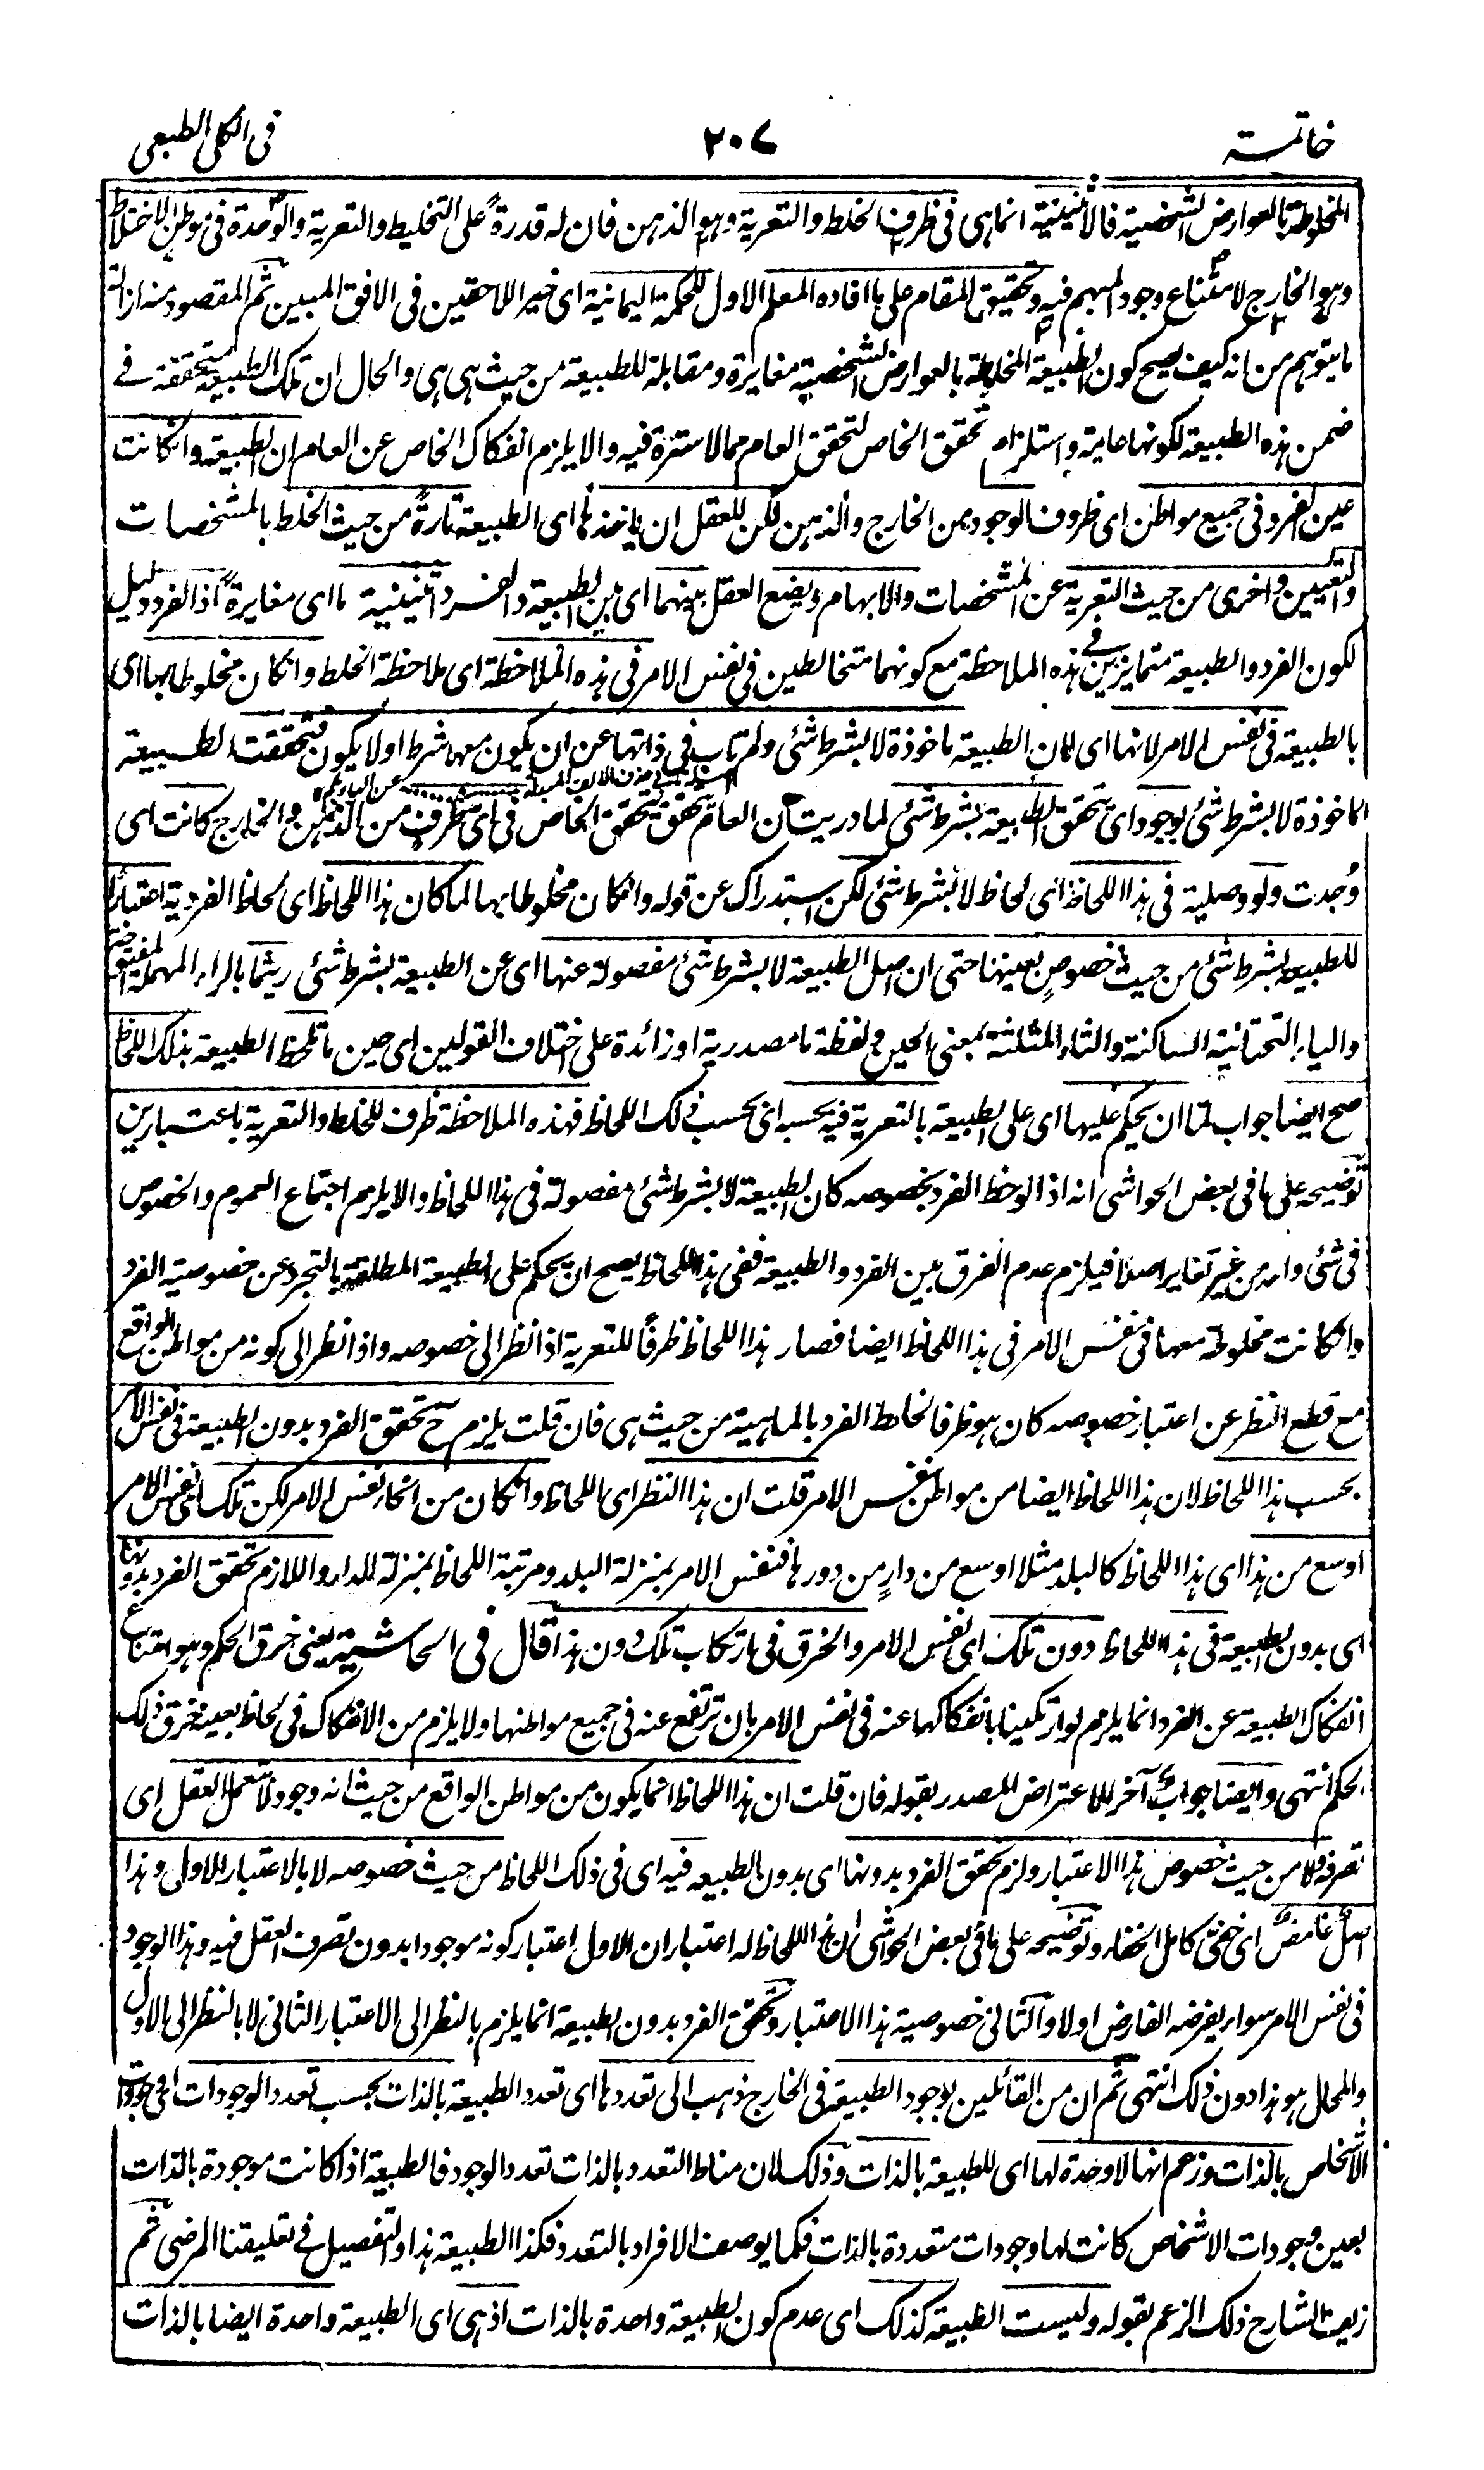 خاتمة ٢٠٧ فى الكلى الطبعى
المخلوطة بالعوارض الشخصية فالاثنينية انما هى فى ظرف الخلط والتعرية وهو الذهن فان له قدرة على التخليط والتعرية والوحدة فى موطن الاختلاط
وهو الخارج لامتناع وجود المبهم فيه وتحقيق المقام على ما افاده المعلم الاول للحكمة اليمانية اى خير اللاحقين فى الافق المبين ثم المقصود منه ازالة
ما يتوهم من انه كيف يصح كون الطبيعة المخلطة بالعوارض الشخصية مغايرة ومقابلة للطبيعة من حيث هى هى والحال ان تلك الطبيعة متحققة فى
ضمن هذه الطبيعة لكونها عامية واستلزام تحقق الخاص لتحقق العام مما لا سترة فيه والا يلزم انفكاك الخاص عن العام ان الطبيعة وانكانت
عين الفرد فى جميع مواطن اى ظروف الوجود من الخارج والذهن لكن للعقل ان ياخذها اى الطبيعة تارةً من حيث الخلط بالمشخصات
والتعيين واخرى من حيث التعرية عن المشخصات والابهام ويضع العقل بينهما اى بين الطبيعة والفرد اثنينية ما اى مغايرةً اذ الفرد دليل
لكون الفرد والطبيعة متمايزين فى هذه الملاحظة مع كونهما متخالطين فى نفس الامر فى هذه الملاحظة اى ملاحظة الخلط وانكان مخلوطا بها اى
بالطبيعة فى نفس الامر لانها اى لان الطبيعة ماخوذة لا بشرط شئ ولم تاب فى ذاتها عن ان يكون معها شرط او لا يكون فتحققت الطبيعة
الماخوذة لا بشرط شئ بوجود اى تحقق الطبيعة بشرط شئ لما دريت ان العام تحقق بتحقق الخاص فى اى ظرف من الذهن والخارج كانت اى
وُجدت ولو وصلية فى هذا اللحاظ اى لحاظ لا بشرط شئ لكن استدراك عن قوله وانكان مخلوطا بها لما كان هذا اللحاظ اى لحاظ الفردية اعتباراً
للطبيعة بشرط شئ من حيث خصوصٍ بعينها حتى ان اصل الطبيعة لا بشرط شئ مفصولة عنها اى عن الطبيعة بشرط شئ ريثما بالراء المهملة المفتوحة
والياء التحتانية الساكنة والثاء المثلثة بمعنى الحين ولفظة ما مصدرية او زائدة على اختلاف القولين اى حين ما تلحظ الطبيعة بذلك اللحاظ
صح ايضا جواب لما ان يحكم عليها اى على الطبيعة بالتعرية فيه بحسبه اى بحسب ذلك اللحاظ فهذه الملاحظة ظرف للخلط والتعرية باعتبارين
توضيحه على ما فى بعض الحواشى انه اذا لوحظ الفرد بخصوصه كان الطبيعة لا بشرط شئ مفصولة فى هذا اللحاظ والا يلزم اجتماع العموم والخصوص
فى شئ واحد من غير تغاير اصلا فيلزم عدم الفرق بين الفرد والطبيعة ففى هذا اللحاظ يصح ان يحكم على الطبيعة المطلقة بالتجرد عن خصوصية الفرد
وانكانت مخلوطة معها فى نفس الامر فى هذا اللحاظ ايضا فصار هذا اللحاظ ظرفًا للتعرية اذا نظر الى خصوصه واذا نظر الى كونه من مواطن الواقع
مع قطع النظر عن اعتبار خصوصه كان هو ظرفا لخلط الفرد بالماهية من حيث هى فان قلت يلزم ح تحقق الفرد بدون الطبيعة فى نفس الامر
بحسب هذا اللحاظ لان هذا اللحاظ ايضا من مواطن نفس الامر قلت ان هذا النظر اى اللحاظ وانكان من انحاء نفس الامر لكن تلك اى نفس الامر
اوسع من هذا اى هذا اللحاظ كالبلد مثلا اوسع من دارٍ من دورها فنفس الامر بمنزلة البلد ومرتبة اللحاظ بمنزلة الدار واللازم تحقق الفرد بدونها
اى بدون الطبيعة فى هذا اللحاظ دون تلك اى نفس الامر والخرق فى ارتكاب تلك دون هذا قال فى الحاشية يعنى خرق الحكم وهو امتناع
انفكاك الطبيعة عن الفرد انما يلزم لو ارتكبنا بانفكاكها عنه فى نفس الامر بان ترتفع عنه فى جميع مواطنها ولا يلزم من الانفكاك فى لحاظ بعينه خرق ذلك
الحكم انتهى وايضا جوابٌ آخر للاعتراض المصدر بقوله فان قلت ان هذا اللحاظ انما يكون من مواطن الواقع من حيث انه وجود لا بتعمل العقل اى
تصرفه لا من حيث خصوص هذا الاعتبار ولزم تحقق الفرد بدونها اى بدون الطبيعة فيه اى فى ذلك اللحاظ من حيث خصوصه لا بالاعتبار الاول وهذا
اصلٌ غامضٌ اى خفى كامل الخفاء وتوضيحه على ما فى بعض الحواشى ان هذا اللحاظ له اعتباران الاول اعتبار كونه موجودا بدون تصرف العقل فيه وهذا الوجود
فى نفس الامر سواء يفرضه الفارض اولا والثانى خصوصية هذا الاعتبار وتحقق الفرد بدون الطبيعة انما يلزم بالنظر الى الاعتبار الثانى لا بالنظر الى الاول
والمحال هو هذا دون ذلك انتهى ثم ان من القائلين بوجود الطبيعة فى الخارج ذهب الى تعددها اى تعدد الطبيعة بالذات بحسب تعدد الوجودات اى وجودات
الاشخاص بالذات وزعم انها لا وحدة لها اى للطبيعة بالذات وذلك لان مناط التعدد بالذات تعدد الوجود فالطبيعة اذا كانت موجودة بالذات
بعين وجودات الاشخاص كانت لها وجودات متعددة بالذات فكما يوصف الافراد بالتعدد فكذا الطبيعة هذا والتفصيل فى تعليقتنا المرضى ثم
زيف الشارح ذلك الزعم بقوله وليست الطبيعة كذلك اى عدم كون الطبيعة واحدة بالذات اذ هى اى الطبيعة واحدة ايضا بالذات